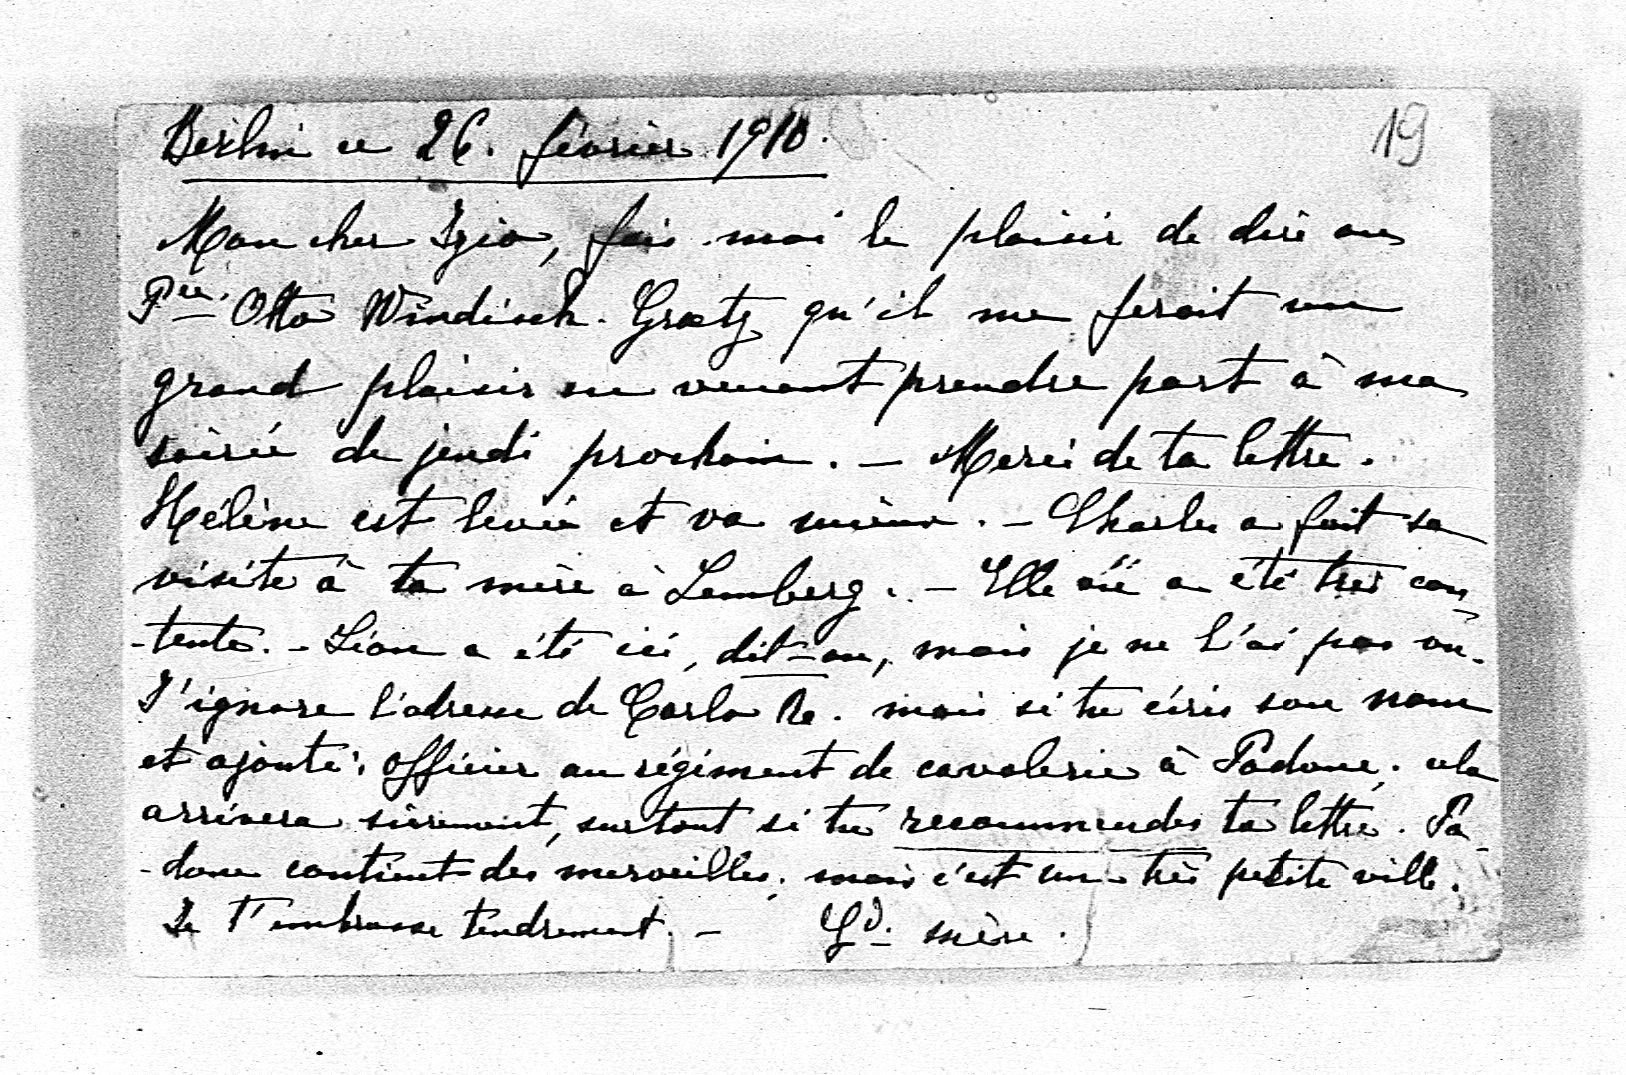 19
Berlin ce 26. février 1910.
Mon cher Izio, fais-moi le plaisir de dire au
Pce. Otto Windisch-Graetz qu'il me ferait un
grand plaisir en venant prendre part à ma
soirée de jeudi prochain. - Merci de ta lettre.
Hélène est levée et va mieux. - Charles a fait sa
visite à ta mère à Lemberg. - Elle a été très con-
-tente. - Léon a été ici, dit-on, mais je ne l'ai pas vu.
J'ignore l'adresse de Carlo Re. mais si tu écris son nom
et ajoute: officier au régiment de cavalerie à Padoue, cela
arrivera sûrement, surtout si tu recommandes ta lettre. Pa-
-doue contient des merveilles, mais c'est une très petite ville.
Je t'embrasse tendrement. - Gd. mère.